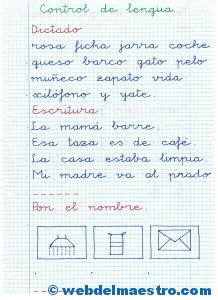 Control de lengua
Dictado
rosa ficha jarra coche
queso barco gato pelo
muñeco zapato vida
xilófono y yate.
Escritura
La mamá barre.
Esa taza es de café.
La casa estaba limpia.
Mi madre va al prado
Pon el nombre.
©webdelmaestro.com